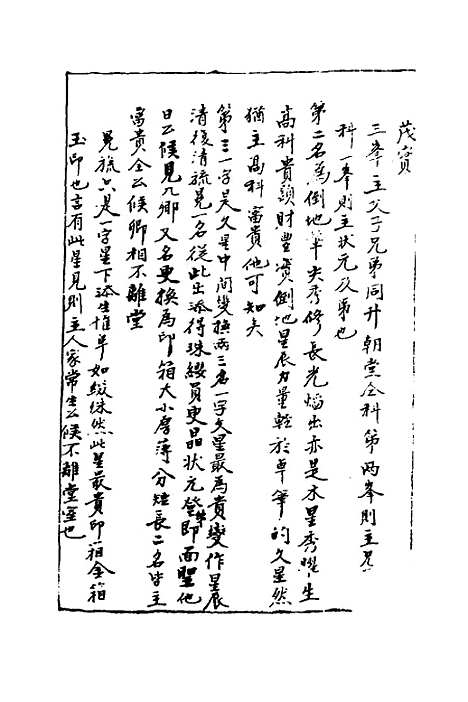 茂實
三峯主父子兄弟同升朝堂仝科第兩峯則主兄
科一峯則主狀元及第也
第二名為倒地筆尖秀修長光焰出亦是木星秀曜生
高科貴顯財豐實倒地星辰力量輕於卓筆的文星然
猶主高科富貴他可知矣
第三一字是文星中間變換兩三名一字文星最為貴變作星辰
清復清旒冕一名從此出添得珠纓員更晶狀元登第即面聖他
日公候見九卿又名更換為印箱大小厚薄分短長二名皆主
富貴全公候卿相不離堂
冕旒只是一字星下添生惟草如纓絲然此星最貴印箱金箱
玉印也言有此星見則主人家常生公候不離堂室也